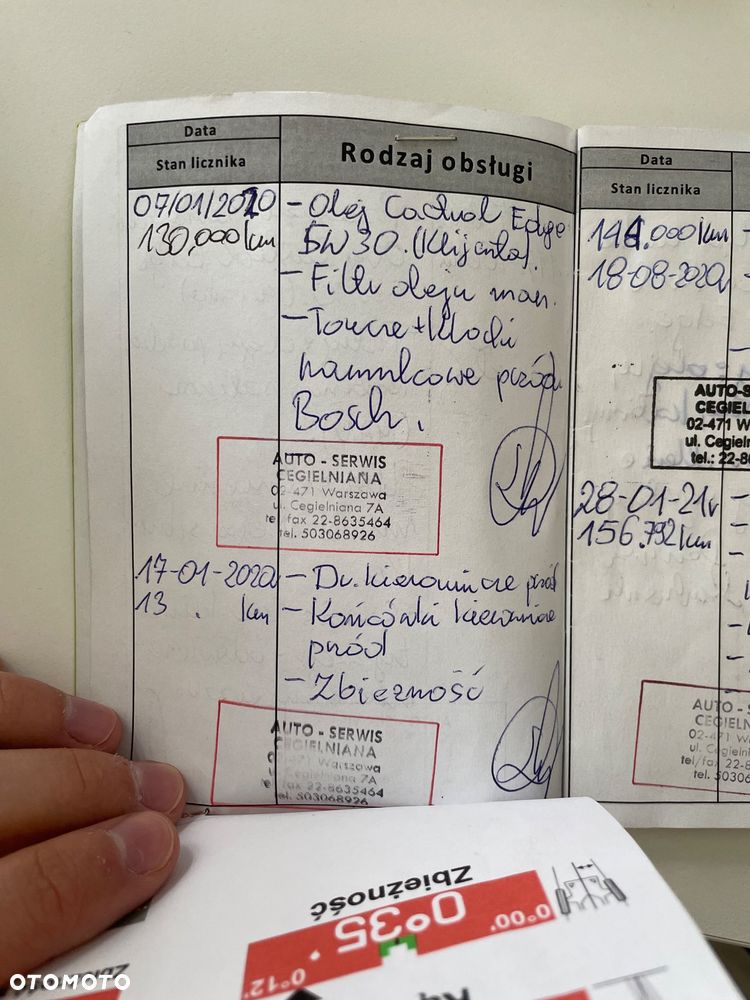 Data
Stan licznika
Rodzaj obsługi
07/01/2020
130,000 km
- Olej Castrol Edge
5W30. (Klijenta).
- Filtr oleju man.
- Tarcze + klocki
hamulcowe przód
Bosch.
AUTO - SERWIS
CEGIELNIANA
02-471 Warszawa
ul. Cegielniana 7A
tel/fax 22-8635464
tel. 503068926
17-01-2020
13 . km
- Dr. kierownicze przód
- Końcówki kierownicze
przód
- Zbieżność
AUTO - SERWIS
CEGIELNIANA
02-471 Warszawa
ul. Cegielniana 7A
tel/fax 22-8635464
tel. 503068926
Data
Stan licznika
.000 km
18-08-2020
AUTO-S
CEGIEL
02-471 W
ul. Cegieln
tel.: 22-8
28-01-21r
156.792 km
AUTO - S
CEGIELN
02-471 W
ul. Cegieln
tel/fax 22-8
tel. 5030
Zbieżność
0°35'
0°00'
0°12'
OTOMOTO